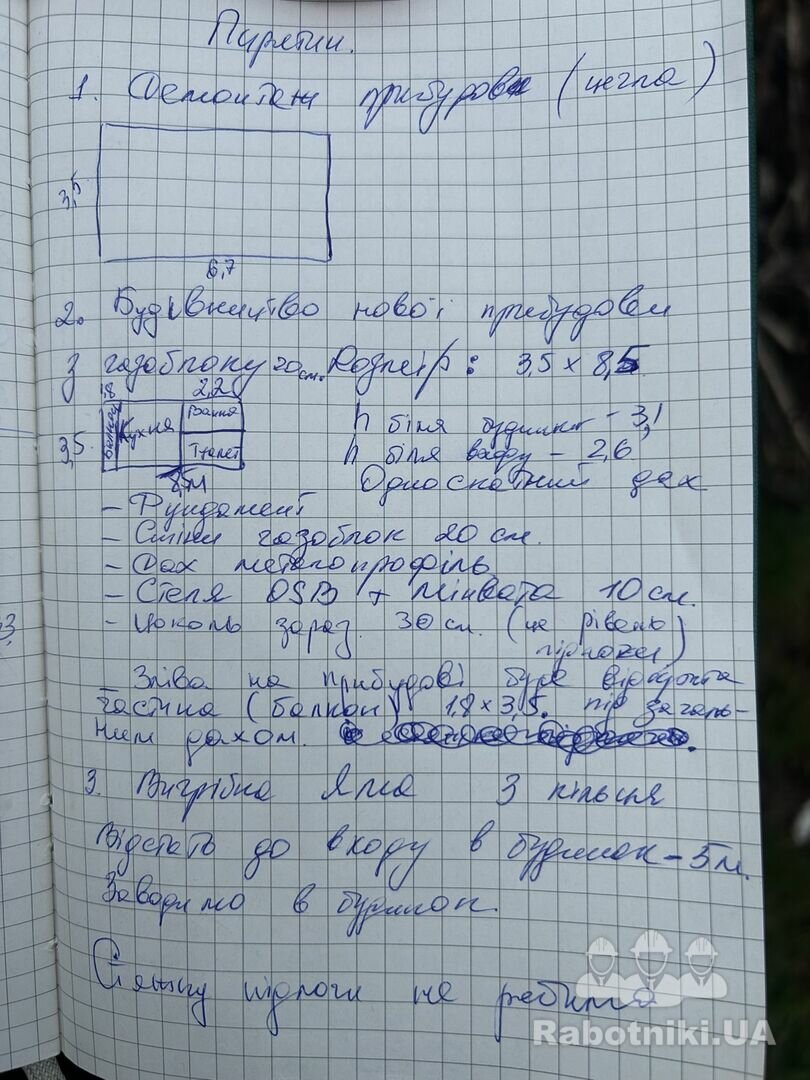 Пирятин.
1. Демонтаж прибудови (цегла)
3,5
6,7
2. Будівництво нової прибудови
з газоблоку 20 см. Розмір: 3,5 х 8,5
1,8 2,2
Балкон Кухня Ванна h біля будинку - 3,1
3,5 Туалет h біля входу - 2,6
8,5 м Односкатний дах
- Фундамент
- Стіни газоблок 20 см.
- Дах металопрофіль
- Стеля OSB + мінвата 10 см.
- Цоколь зараз 30 см. (це рівень
підлоги)
- Зліва на прибудові буде відкрита
частина (балкон) 1,8 х 3,5. під загаль-
ним дахом.
3. Вигрібна яма 3 кільця
Відстань до входу в будинок - 5 м.
Заводимо в будинок.
Стяжку підлоги не робимо
Rabotniki.UA